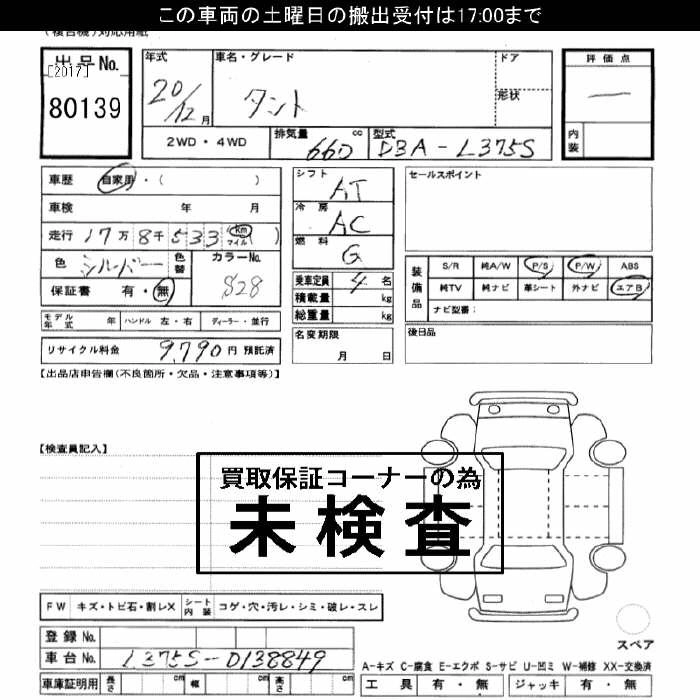 この車両の土曜日の搬出受付は17:00まで
(複合機)対応用紙
出品No.
[2017]
80139
年式 20/12月
車名・グレード タント
ドア
形状
2WD・4WD
排気量 660 cc
型式 DBA-L375S
評価点 ―
内装
車歴 自家用・( )
車検 年 月
走行 17万8千533 Km マイル ( )
色 シルバー
色替
カラーNo. S28
保証書 有・無
モデル年式 年 ハンドル 左・右 ディーラー・並行
リサイクル料金 9,790円 預託済
シフト AT
冷房 AC
燃料 G
乗車定員 4名
積載量 kg
総重量 kg
名変期限 月 日
セールスポイント
装備品
S/R 純A/W P/S P/W ABS
純TV 純ナビ 革シート 外ナビ エアB
ナビ型番:
後日品
【出品店申告欄(不良箇所・欠品・注意事項等)】
【検査員記入】
買取保証コーナーの為
未検査
FW キズ・トビ石・割レX シート内装 コゲ・穴・汚レ・シミ・破レ・スレ
登録No.
車台No. L375S-0138849
車庫証明用 長さ cm 幅 cm 高さ cm
スペア
A-キズ C-腐食 E-エクボ S-サビ U-凹ミ W-補修 XX-交換済
工具 有・無 ジャッキ 有・無